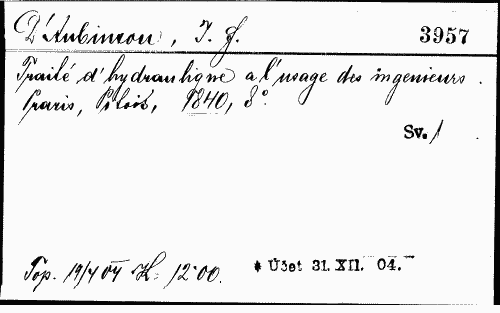 D'Aubincou, T. J. 3957
Traité d'hydraulique a l'usage des ingenieurs.
Paris, Pitois, 1840, 8°.
Sv. 1
Top. 19/4 04 K. 12·00. * Účet 31. XII. 04.